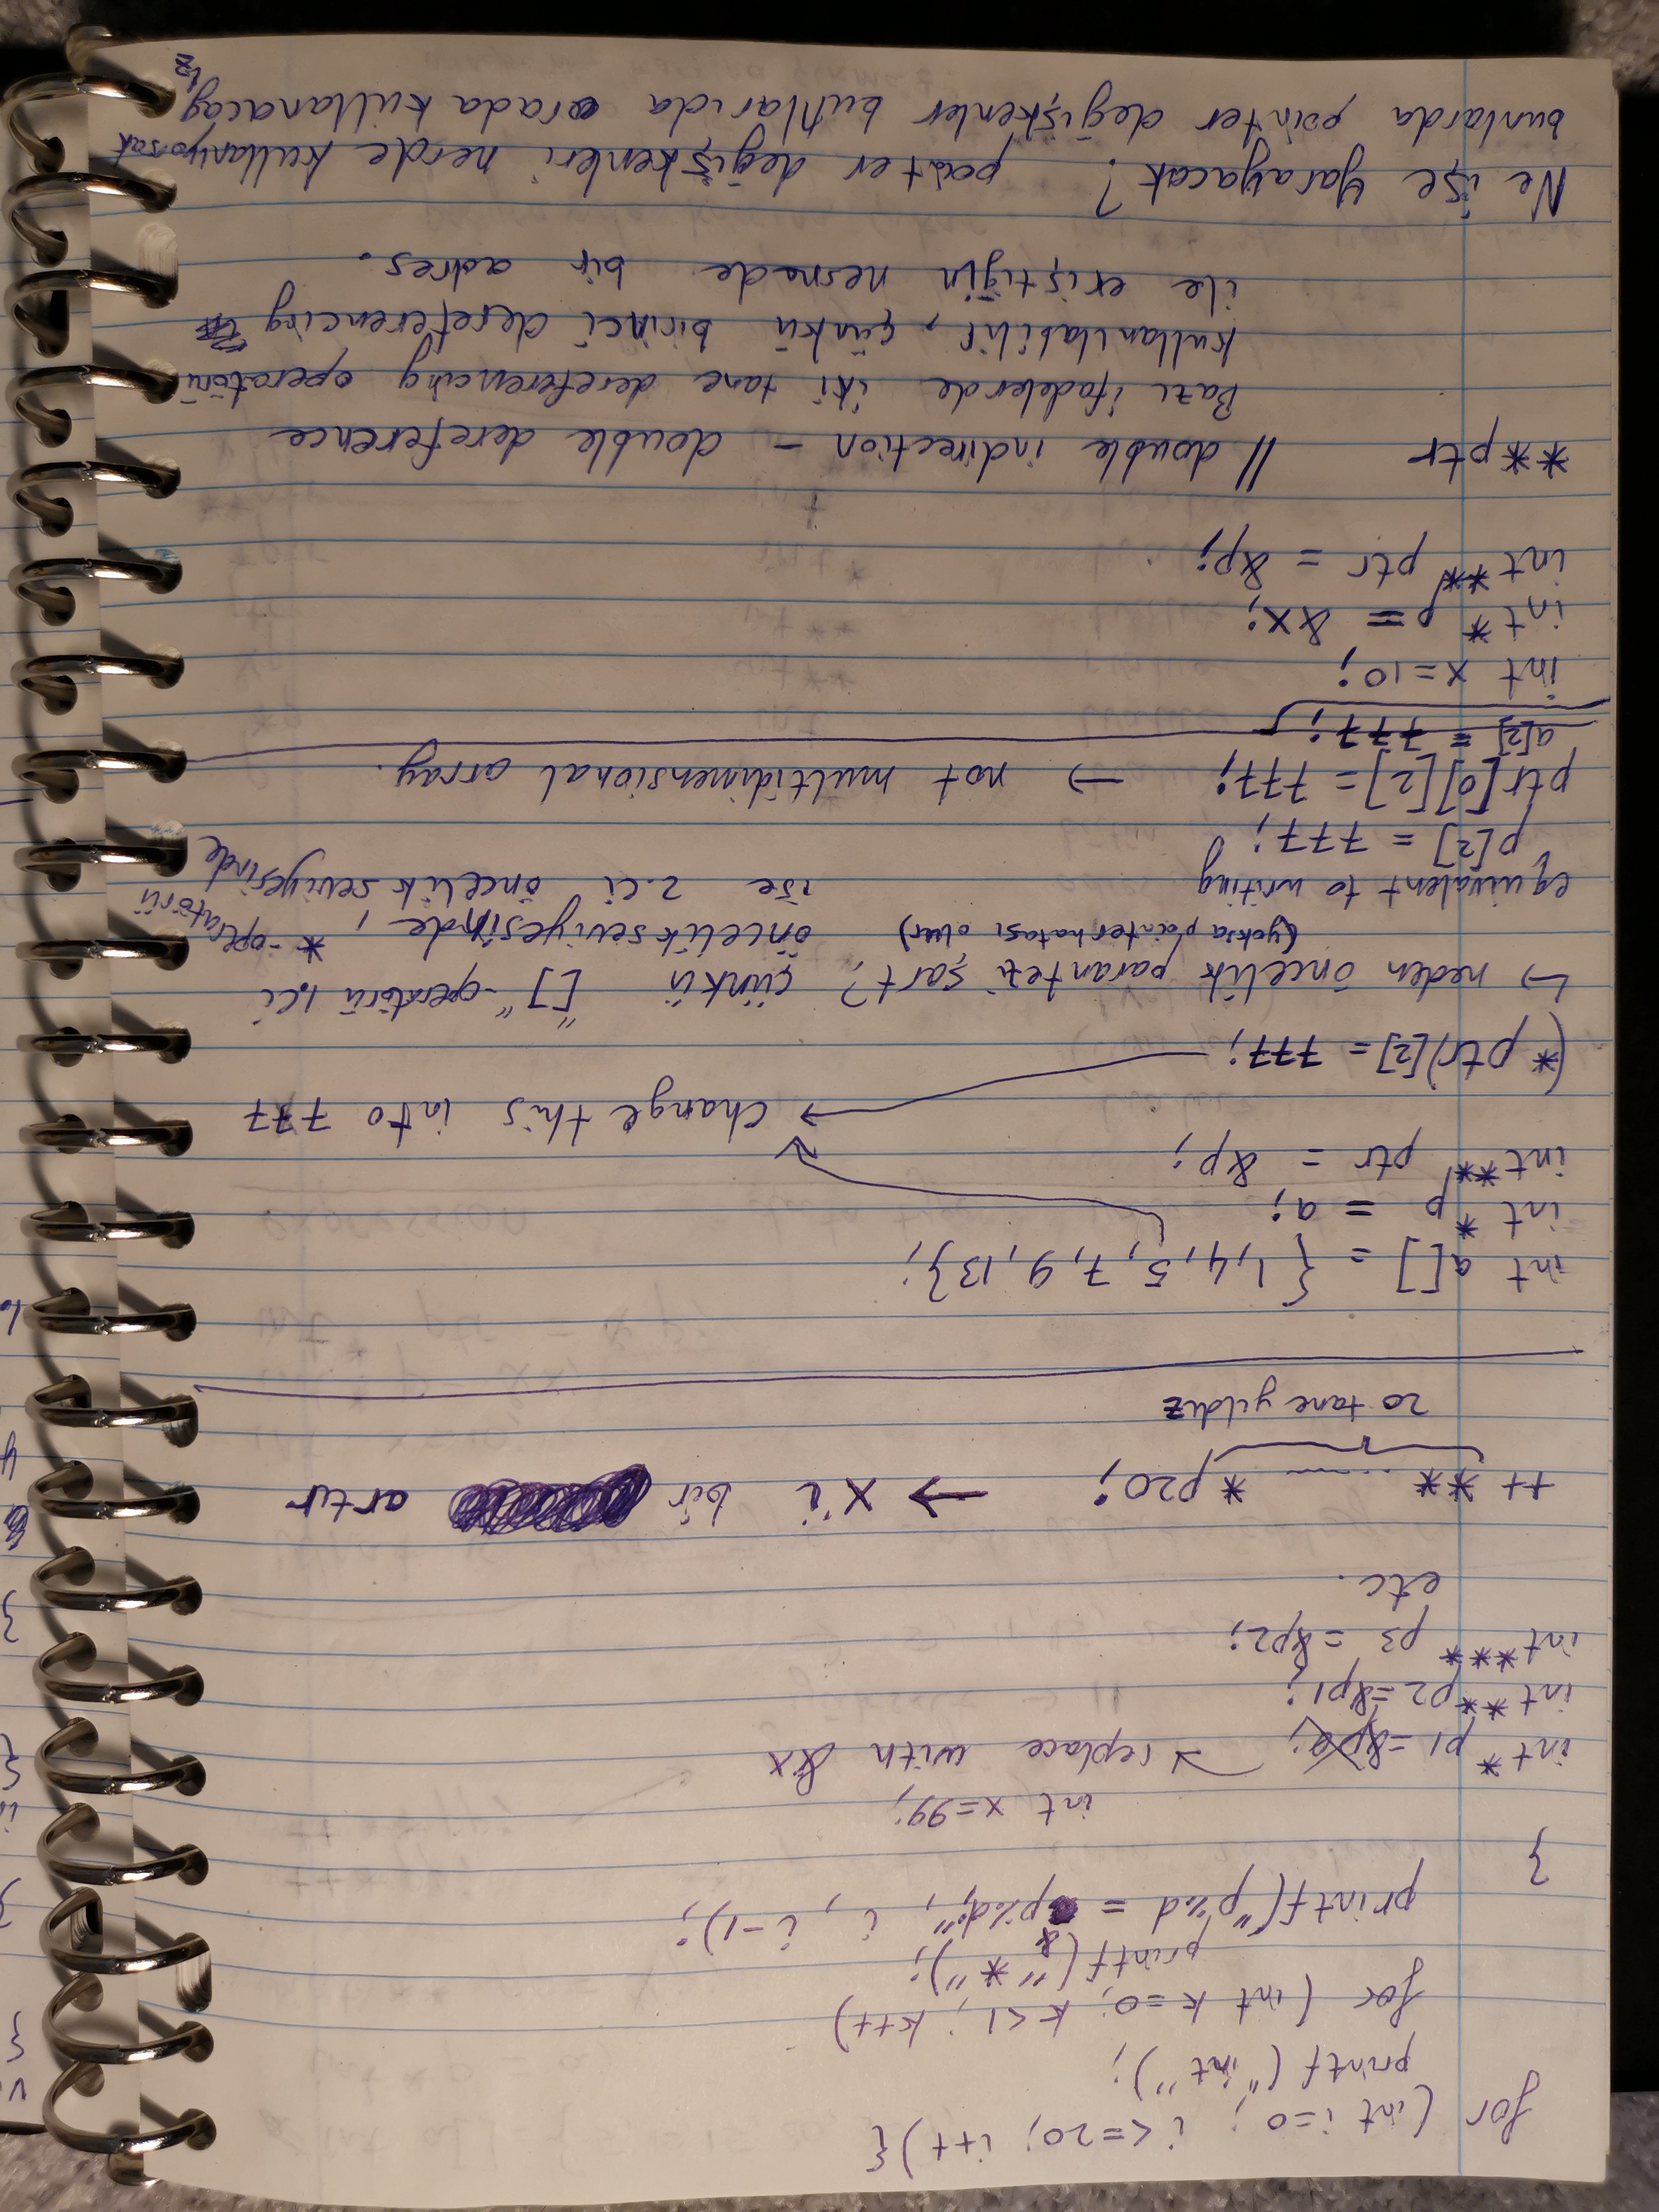 for (int i=0; i<=20; i++){
printf("int");
for (int k=0; k<1; k++)
printf("*");
printf("p%d = &p%d;", i, i-1);
}
int x=99;
int* p1 =&p0; → replace with &x
int** p2 =&p1;
int*** p3 =&p2;
etc.
++ ** ...... *p20; → x'i bir artır
20 tane yıldız
int a[] = {1,4,5,7,9,13};
int *p = a;
int** ptr = &p;
→ change this into 777
(*ptr)[2] = 777;
↳ neden öncelik parantezi şart? çünkü "[]"-operatörü 1.ci
(yoksa pointer hatası olur) öncelik seviyesinde, *-operatörü
equivalent to writing ise 2.ci öncelik seviyesinde
p[2] = 777;
ptr[0][2] = 777; → not multidimensional array.
a[2] = 777;
int x=10;
int* p= &x;
int** ptr = &p;
**ptr // double indirection - double dereference
Bazı ifadelerde iki tane dereferencing operatörü
kullanılabilir, çünkü birinci dereferencing
ile eriştiğin nesnede bir adres.
Ne işe yarayacak? pointer değişkenleri nerde kullanıyorsak
bunlarda pointer değişkenler bunlarıda orada kullanacağız